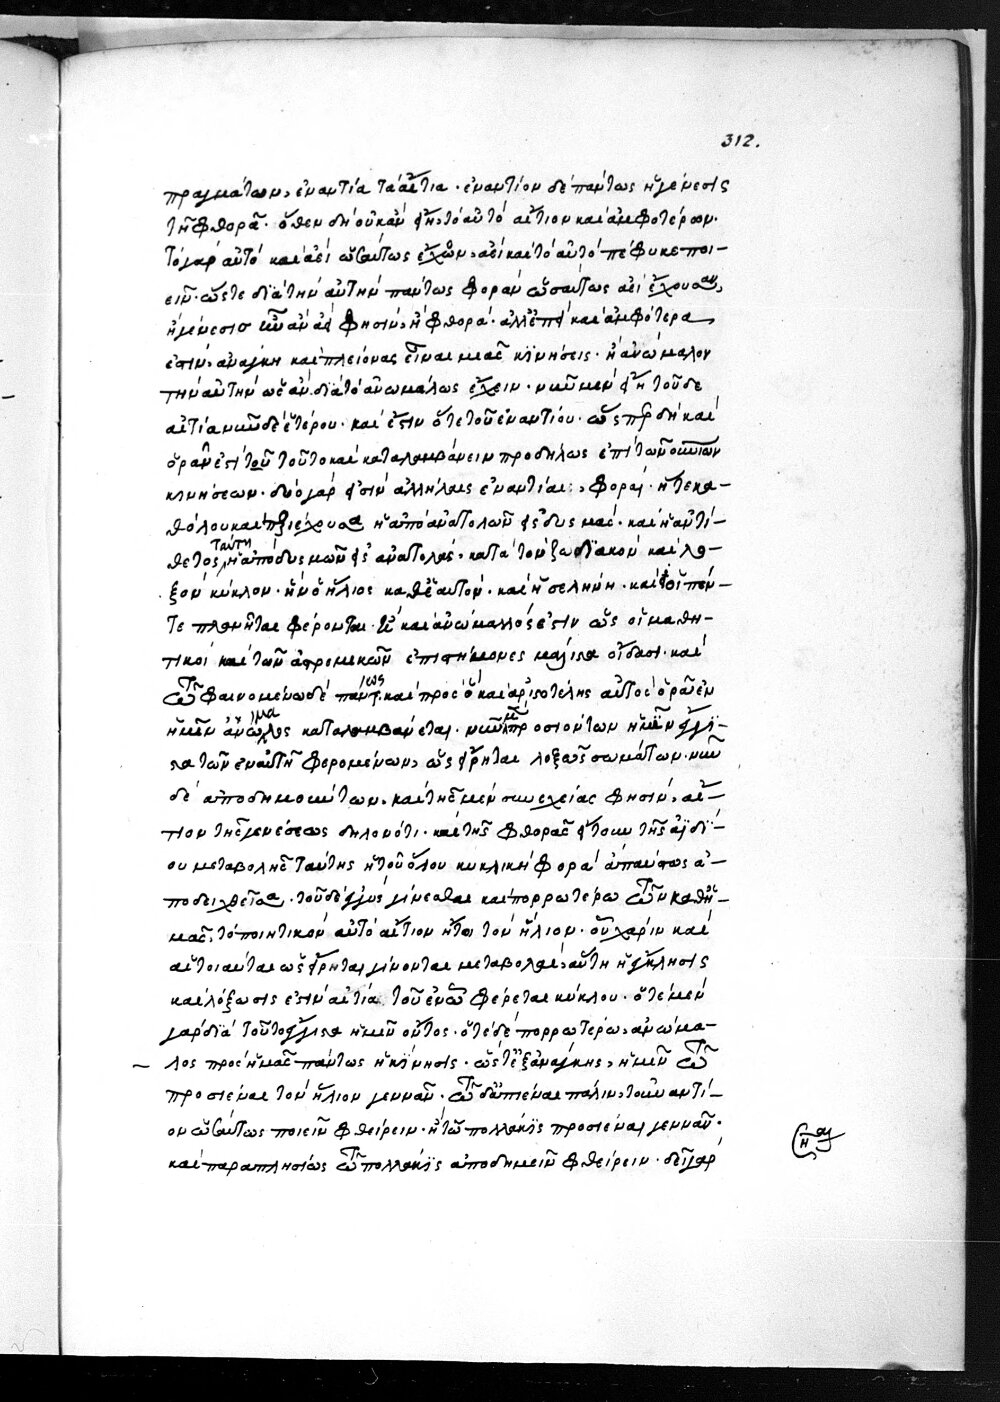 312.
πραγμάτων, ἐναντία τὰ αἴτια · ἐναντίον δὲ πάντως ἡ γένεσις
τῇ φθορᾷ · ὅθεν δὴ οὐκ ἂν εἴη τὸ αὐτὸ αἴτιον καὶ ἀμφοτέρων ·
τὸ γὰρ αὐτὸ καὶ ἀεὶ ὡσαύτως ἔχον, ἀεὶ καὶ τὸ αὐτὸ πέφυκε ποι–
εῖν · ὥστε διὰ τὴν αὐτὴν πάντως φορὰν ὡσαύτως ἀεὶ ἔχουσαν,
ἢ γένεσις ἂν ἀεὶ φησὶν, ἢ φθορά · ἀλλ' ἐπεὶ καὶ ἀμφότερα
ἐστὶν, ἀνάγκη καὶ πλείονας εἶναι μιᾶς κϊνήσεις · ἢ ἀνώμαλον
τὴν αὐτὴν ὡς ἂν διὰ τὸ ἀνωμάλως ἔχειν · νῦν μὲν εἴη τοῦδε
αἰτία νῦν δὲ ἑτέρου · καὶ ἔστιν ὅτε τοῦ ἐναντίου · ὥσπερ δὴ καὶ
ὁρᾶν ἐστὶ τοῦτο καὶ καταλαμβάνειν προδήλως ἐπὶ τῶν οὐρανίων
κινήσεων · δύο γὰρ εἰσὶν ἀλλήλαις ἐναντίαι, φοραί · ἥ τε κα–
θόλου καὶ περιέχουσα ἡ ἀπὸ ἀνατολῶν εἰς δυσμάς · καὶ ἡ ἀντί–
θετος ταύτῃ ἡ ἀπὸ δυσμῶν εἰς ἀνατολάς · κατὰ τὸν ζωδϊακὸν καὶ λο–
ξὸν κύκλον · ἣν ὁ ἥλιος καθ' ἑαυτὸν · καὶ ἡ σελήνη · καὶ οἱ πέν–
τε πλανῆται φέρονται · καὶ ἀνώμαλλός ἐστιν ὡς οἱ μαθη–
τικοὶ καὶ τῶν ἀστρονομικῶν ἐπιστήμονες μάλιστα οἴδασι · καὶ
τῷ φαινομένῳ δὲ πάντως · καὶ πρὸς ὃ καὶ ἀριστοτέλης αὐτὸς ὁρᾶν ἐν
ἡμῖν ἀνωμάλως καταλαμβάνεται · νῦν μὲν προσιόντων ἡμῖν ἔγγι–
στα τῶν ἐν αὐτῇ φερομένων, ὡς εἴρηται λοξῶς σωμάτων · νῦν
δὲ ἀποδημούντων, καὶ τῆς μὲν συνεχείας φησὶν, αἴ–
τιον τῆς γενέσεως δηλονότι · καὶ τῆς φθορᾶς ἤτοι τῆς ἀϊδί–
ου μεταβολῆς ταύτης ἡ τοῦ ὅλου κυκλικὴ φορὰ ἀπαύστως ἀ–
ποδειχθεῖσα · τοῦ δὲ ἐγγὺς γίνεσθαι καὶ πορρωτέρω τῶν καθ' ἡ–
μᾶς, τὸ ποιητικὸν αὐτὸ αἴτιον ἤτοι τὸν ἥλιον · οὗ χάριν καὶ
αἱ τοιαῦται ὡς εἴρηται γίνονται μεταβολαὶ, αὕτη ἡ ἔγκλησις
καὶ λόξωσις ἐστὶν αἰτία τοῦ ἐν ᾧ φέρεται κύκλου · ὁτὲ μὲν
γὰρ διὰ τοῦτο ἔγγιστα ἡμῖν οὗτος · ὁτὲ δὲ πορρωτέρω, ἀνώμα–
λος πρὸς ἡμᾶς πάντως ἡ κίνησις · ὥστε ἐξ ἀνάγκης, ἡμῖν τῷ
προσιέναι τὸν ἥλιον γεννᾶν · τῷ δ' ἀπιέναι πάλιν, τοὐναντί–
ον ὡσαύτως ποιεῖν φθείρειν · ἢ τῷ πολλάκϊς προσιέναι γεννᾶν ·
καὶ παραπλησίως τῷ πολλάκϊς ἀποδημεῖν φθείρειν · δεῖ γὰρ